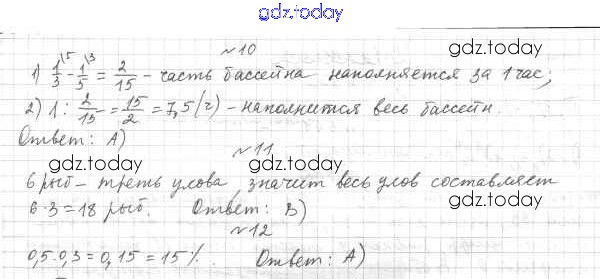 gdz.today
№10
1) 1/3\5 - 1/5\3 = 2/15 - часть бассейна наполняется за 1 час;
gdz.today gdz.today
2) 1 : 2/15 = 15/2 = 7,5 (ч) - наполнится весь бассейн.
Ответ: А)
№11
gdz.today gdz.today
6 рыб - треть улова, значит весь улов составляет
6·3=18 рыб. Ответ: В)
№12
gdz.today gdz.today
0,5·0,3=0,15=15%. Ответ: А)